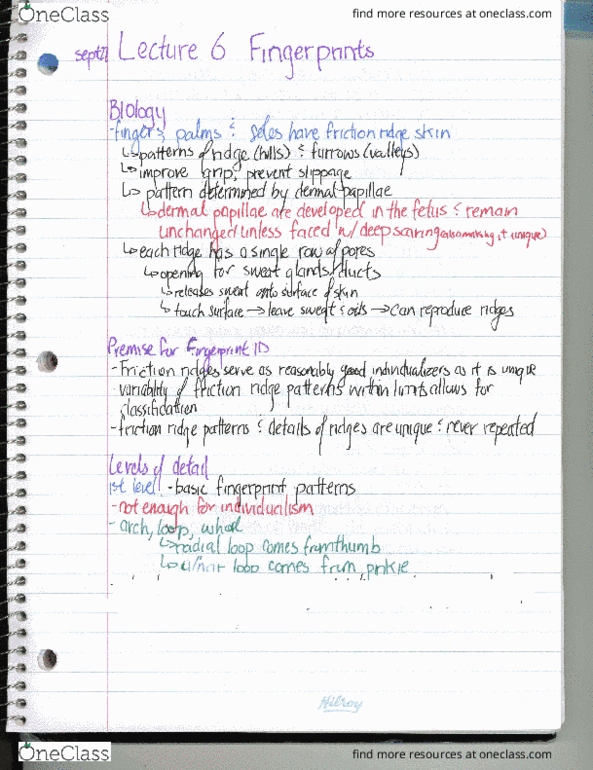 OneClass
find more resources at oneclass.com
Lecture 6 Fingerprints
Biology
-fingers, palms & soles have friction ridge skin
↳patterns of ridge (hills) & furrows (valleys)
↳improve grip, prevent slippage
↳ pattern determined by dermal papillae
↳dermal papillae are developed in the fetus & remain
unchanged unless faced w/ deep scaring (also making it unique)
↳each ridge has a single row of pores
↳opening for sweat glands/ducts
↳releases sweat onto surface of skin
↳ touch surface → leave sweat & oils → can reproduce ridges
Premise for Fingerprint ID
-Friction ridges serve as reasonably good individualizers as it is unique
-variability of friction ridge patterns within limits allows for
classification
-friction ridge patterns & details of ridges are unique & never repeated
Levels of detail
1st level -basic fingerprint patterns
-not enough for individualism
- arch, loop, whorl
↳radial loop comes from thumb
↳ulnar loop comes from pinkie
Hilroy
OneClass
find more resources at oneclass.com